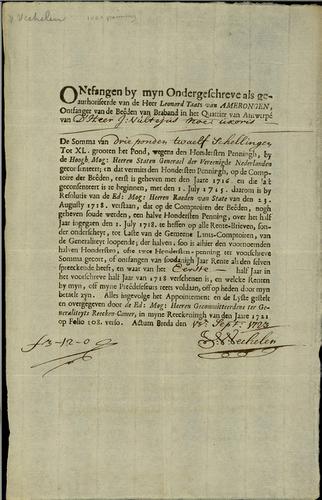 v Vechelen
ONtfangen by myn Ondergeschreve als ge-
authoriseerde van de Heer Leonard Taats van AMERONGEN,
Ontfanger van de Beeden van Braband in het Quartier van Antwerpe
van D'Heer J: Vultejus
De Somma van drie ponden twaelf Schellingen
Tot XL. grooten het Pond, wegens den Hondersten Penningh, by
de Hoogh Mog: Heeren Staten Generael der Vereenigde Nederlanden
geconsenteert; en dat vermits den Hondersten Penningh, op de Comp-
toire der Beeden, eerst is geheven met den Jaare 1716. en die 'ak
geconsenteert is te beginnen, met den 1. July 1715. daarom is by
Resolutie van de Ed: Mog: Heeren Raeden van State van den 23.
Augusty 1718. verstaan, dat op de Comptoiren der Beeden, nogh
geheven soude werden, een halve Hondersten Penning, over het half
Jaar ingegaen den 1. July 1718. te heffen op alle Rente-Brieven, son-
der onderscheyt, ter Laste van de Gemeene Lants-Comptoiren, van
de Generaliteyt loopende; der halven, soo is alhier den voornoemden
halven Hondersten, ofte twee Hondersten-penning ter voorschreve
Somma gecort, of ontfangen van soodanigh Jaar Rente als den selven
spreeckende heeft, en waar van het Eerste half Jaar in
het voorschreve Jaar van 1718 verschenen is, en welcke Renten
by myn, off myne Predecesseurs reets voldaan, off op heden door myn
betaelt zyn. Alles ingevolge het Appointement en de Lyste gestelt
en overgegeven door de Ed: Mog: Heeren Gecommitteerdens ter Ge-
neraliteyts Reecken-Camer, in myne Reeckeningh van den Jaare 1721
op Folio 108. verso. Actum Breda den Sept: 1723
f 3-12-0
v Vechelen